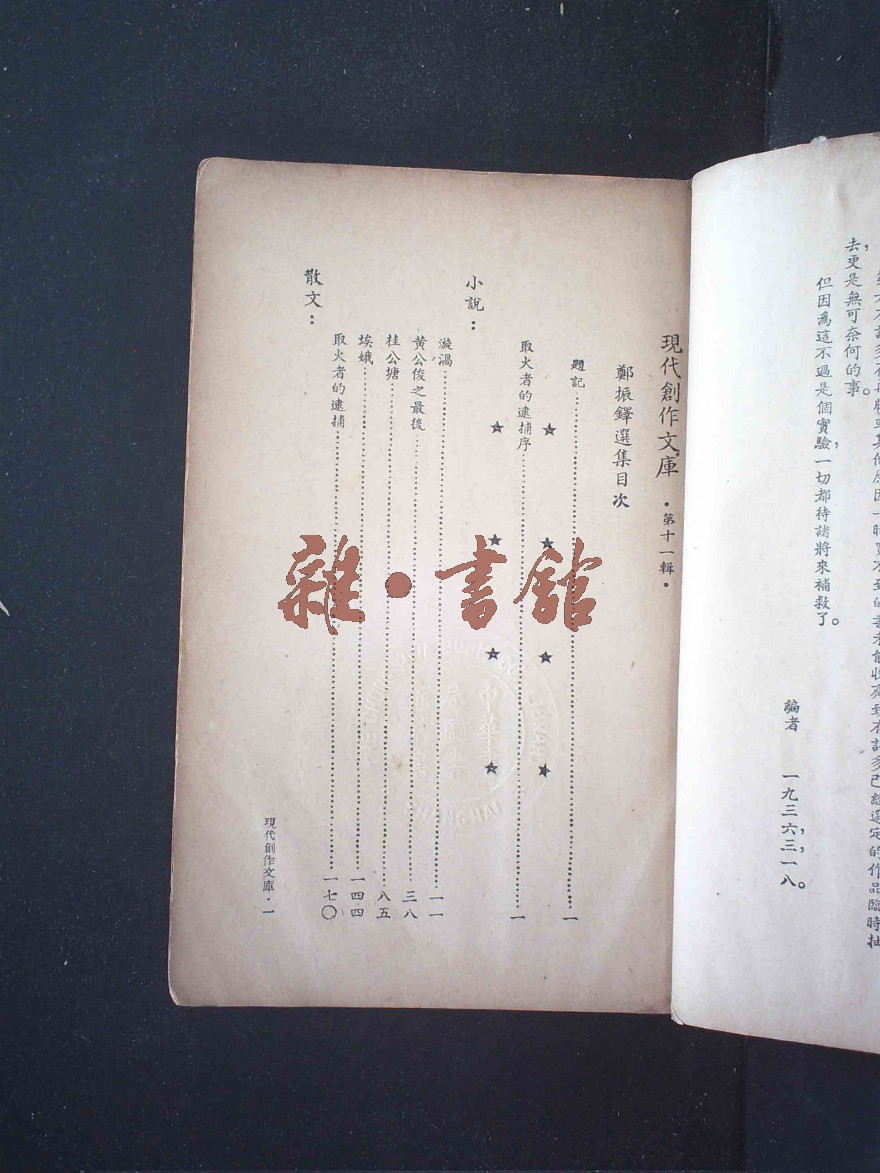 去，更是無可奈何的事。
但因為這不過是個實驗，一切都待諸將來補救了。
編者　一九三六，三，一八。
現代創作文庫　•第十一輯•
鄭振鐸選集目次
題記…………一
取火者的逮捕序…………一
★ ★ ★ ★
★ ★ ★ ★
小說：
漩渦…………一一
黃公俊之最後…………三八
桂公塘…………八五
埃娥…………一四四
取火者的逮捕…………一七〇
散文：
現代創作文庫•一
雜•書館